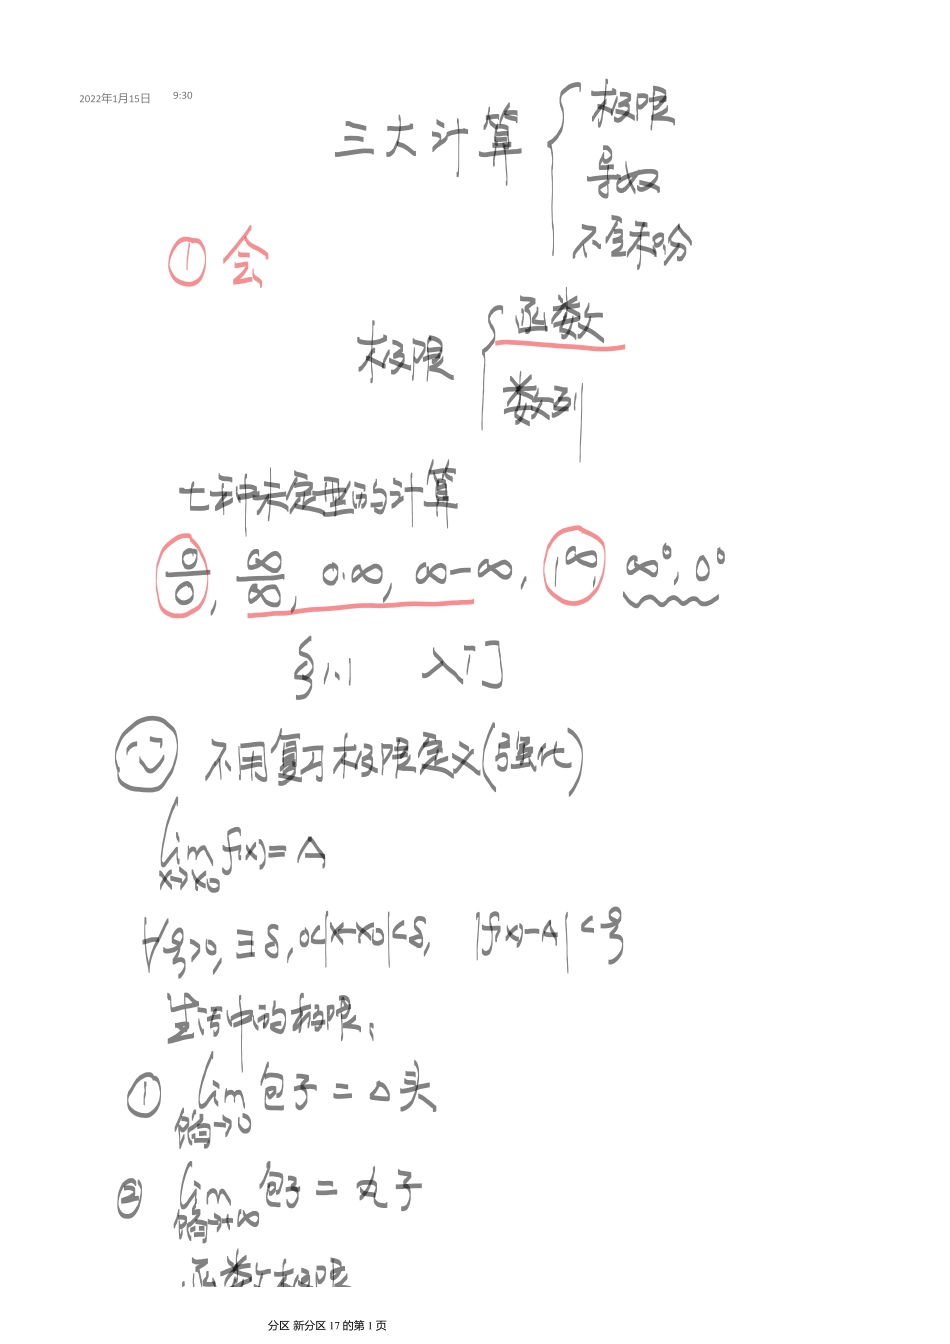 2022年1月15日 9:30
三大计算 { 极限
导数
不定积分
① 会
极限 { 函数
数列
七种未定型的计算
0/0, ∞/∞, 0·∞, ∞-∞, 1^∞, ∞^0, 0^0
§1.1 入门
不用复习极限定义(强化)
lim f(x)= A
x→x0
∀ >0, ∃ δ, 0<|x-x0|<δ, |f(x)-A|<
生活中的极限:
① lim 包子 = 头
馅→0
② lim 包子 = 丸子
馅→+∞
函数极限
分区 新分区 17 的第 1 页